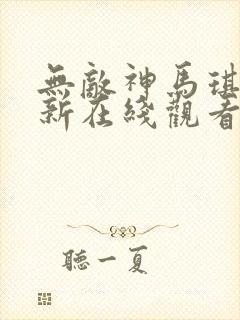 無敵神馬琪
新在綫觀看
聽一夏